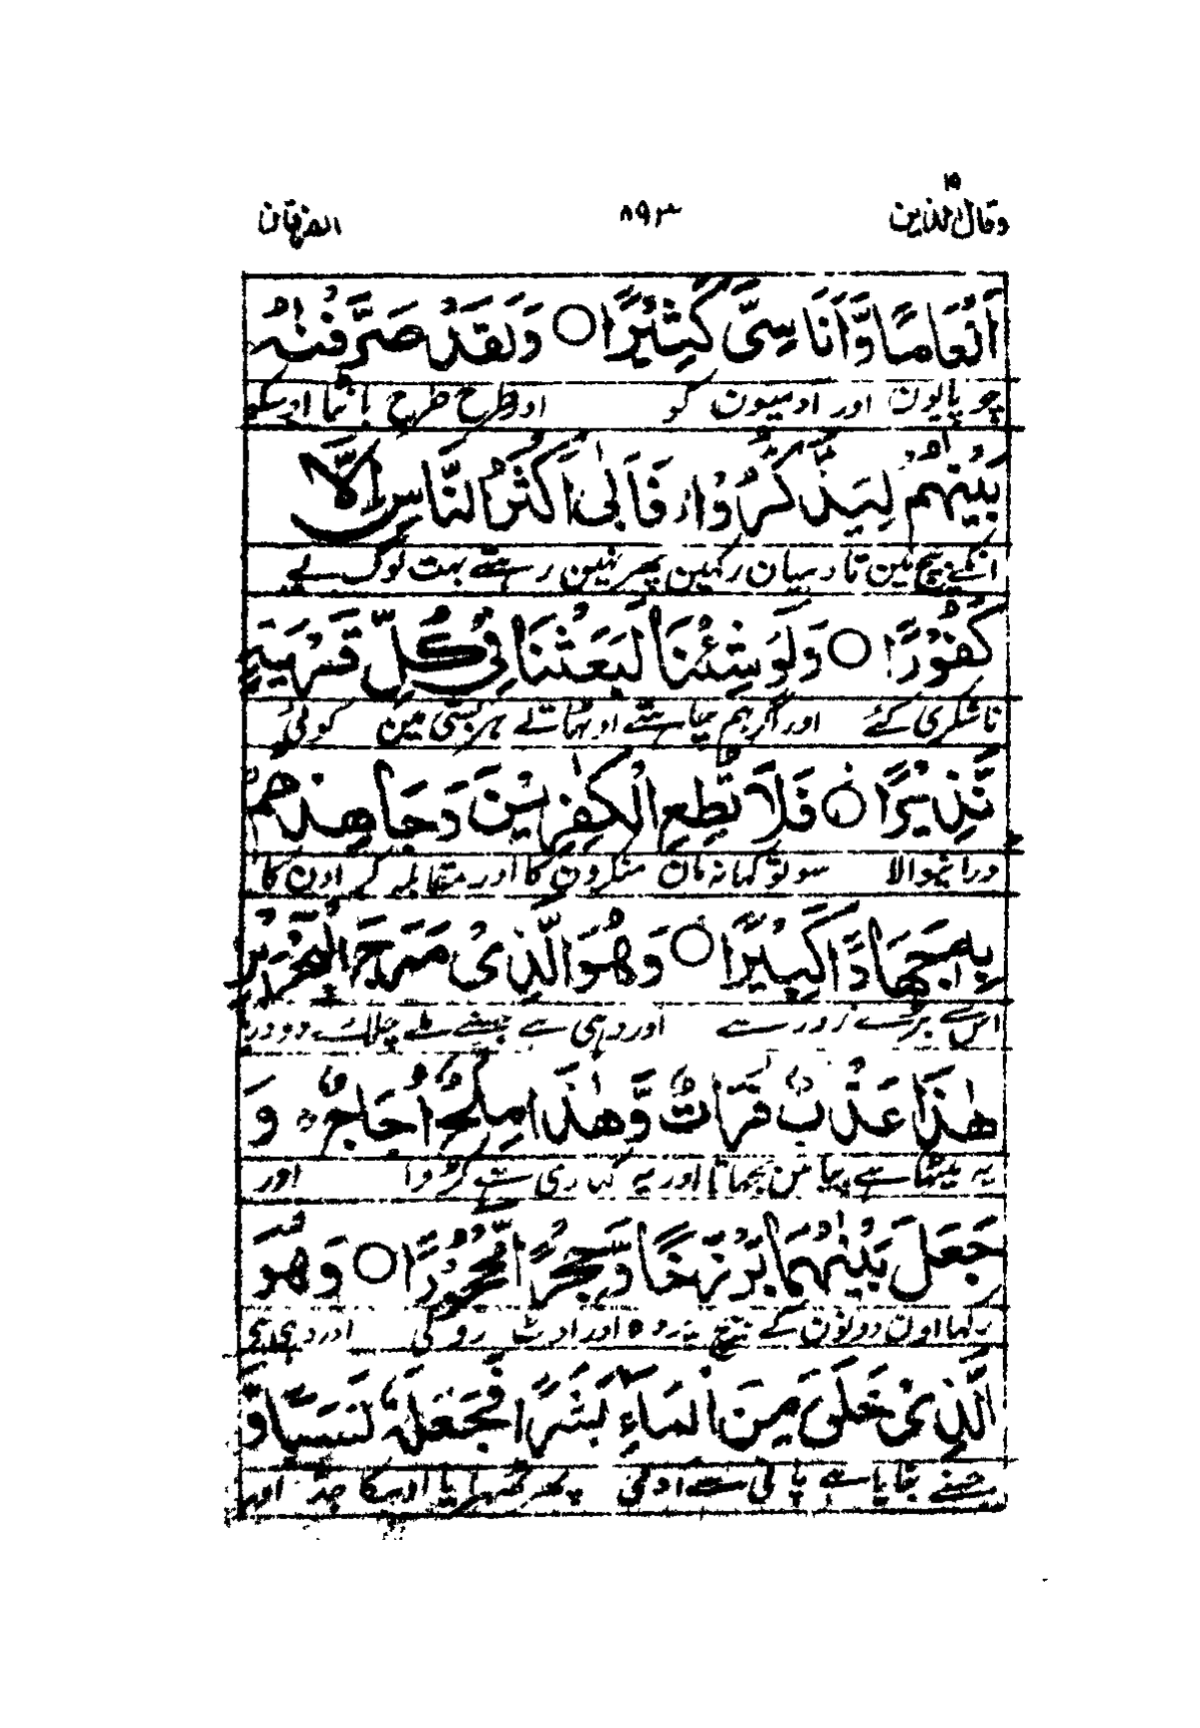 وقال الذين ١٩ ٨٩٣ الفرقان
اَنْعَامًا وَّاَنَاسِيَّ كَثِيْرًا ○ وَلَقَدْ صَرَّفْنٰهُ
چوپایون اور ادمیون کو اور طرح طرح بانٹا اوسکو
بَيْنَهُمْ لِيَذَّكَّرُوْا فَاَبٰى اَكْثَرُ النَّاسِ اِلَّا
انکے بیچ مین تا دہیان رکہین پھر نہین رہتے بہت لوگ بے
كُفُوْرًا ○ وَلَوْ شِئْنَا لَبَعَثْنَا فِيْ كُلِّ قَرْيَةٍ
ناشکری کئے اور اگر ہم چاہتے اوٹھاتے ہر بستی مین کوئی
نَّذِيْرًا ○ فَلَا تُطِعِ الْكٰفِرِيْنَ وَجَاهِدْهُمْ
ڈرانیوالا سو تو کہا نہ مان منکرون کا اور مقابلہ کر اون کا
بِهٖ جِهَادًا كَبِيْرًا ○ وَهُوَ الَّذِيْ مَرَجَ الْبَحْرَيْنِ
اس سے بڑے زور سے اور وہی ہے جسنے ملے چلائے دو دریا
هٰذَا عَذْبٌ فُرَاتٌ وَّهٰذَا مِلْحٌ اُجَاجٌ وَ
یہ میٹھا ہے پیاس بجھاتا اور یہ کھاری ہے کڑوا اور
جَعَلَ بَيْنَهُمَا بَرْزَخًا وَّحِجْرًا مَّحْجُوْرًا ○ وَهُوَ
رکہا اون دونون کے بیچ پردہ اور اوٹ روکی اور وہی ہی
الَّذِيْ خَلَقَ مِنَ الْمَاءِ بَشَرًا فَجَعَلَهٗ نَسَبًا وَّ
جسنے بنایا ہے پانی سے ادمی پھر ٹھہرایا اوسکا جد اور